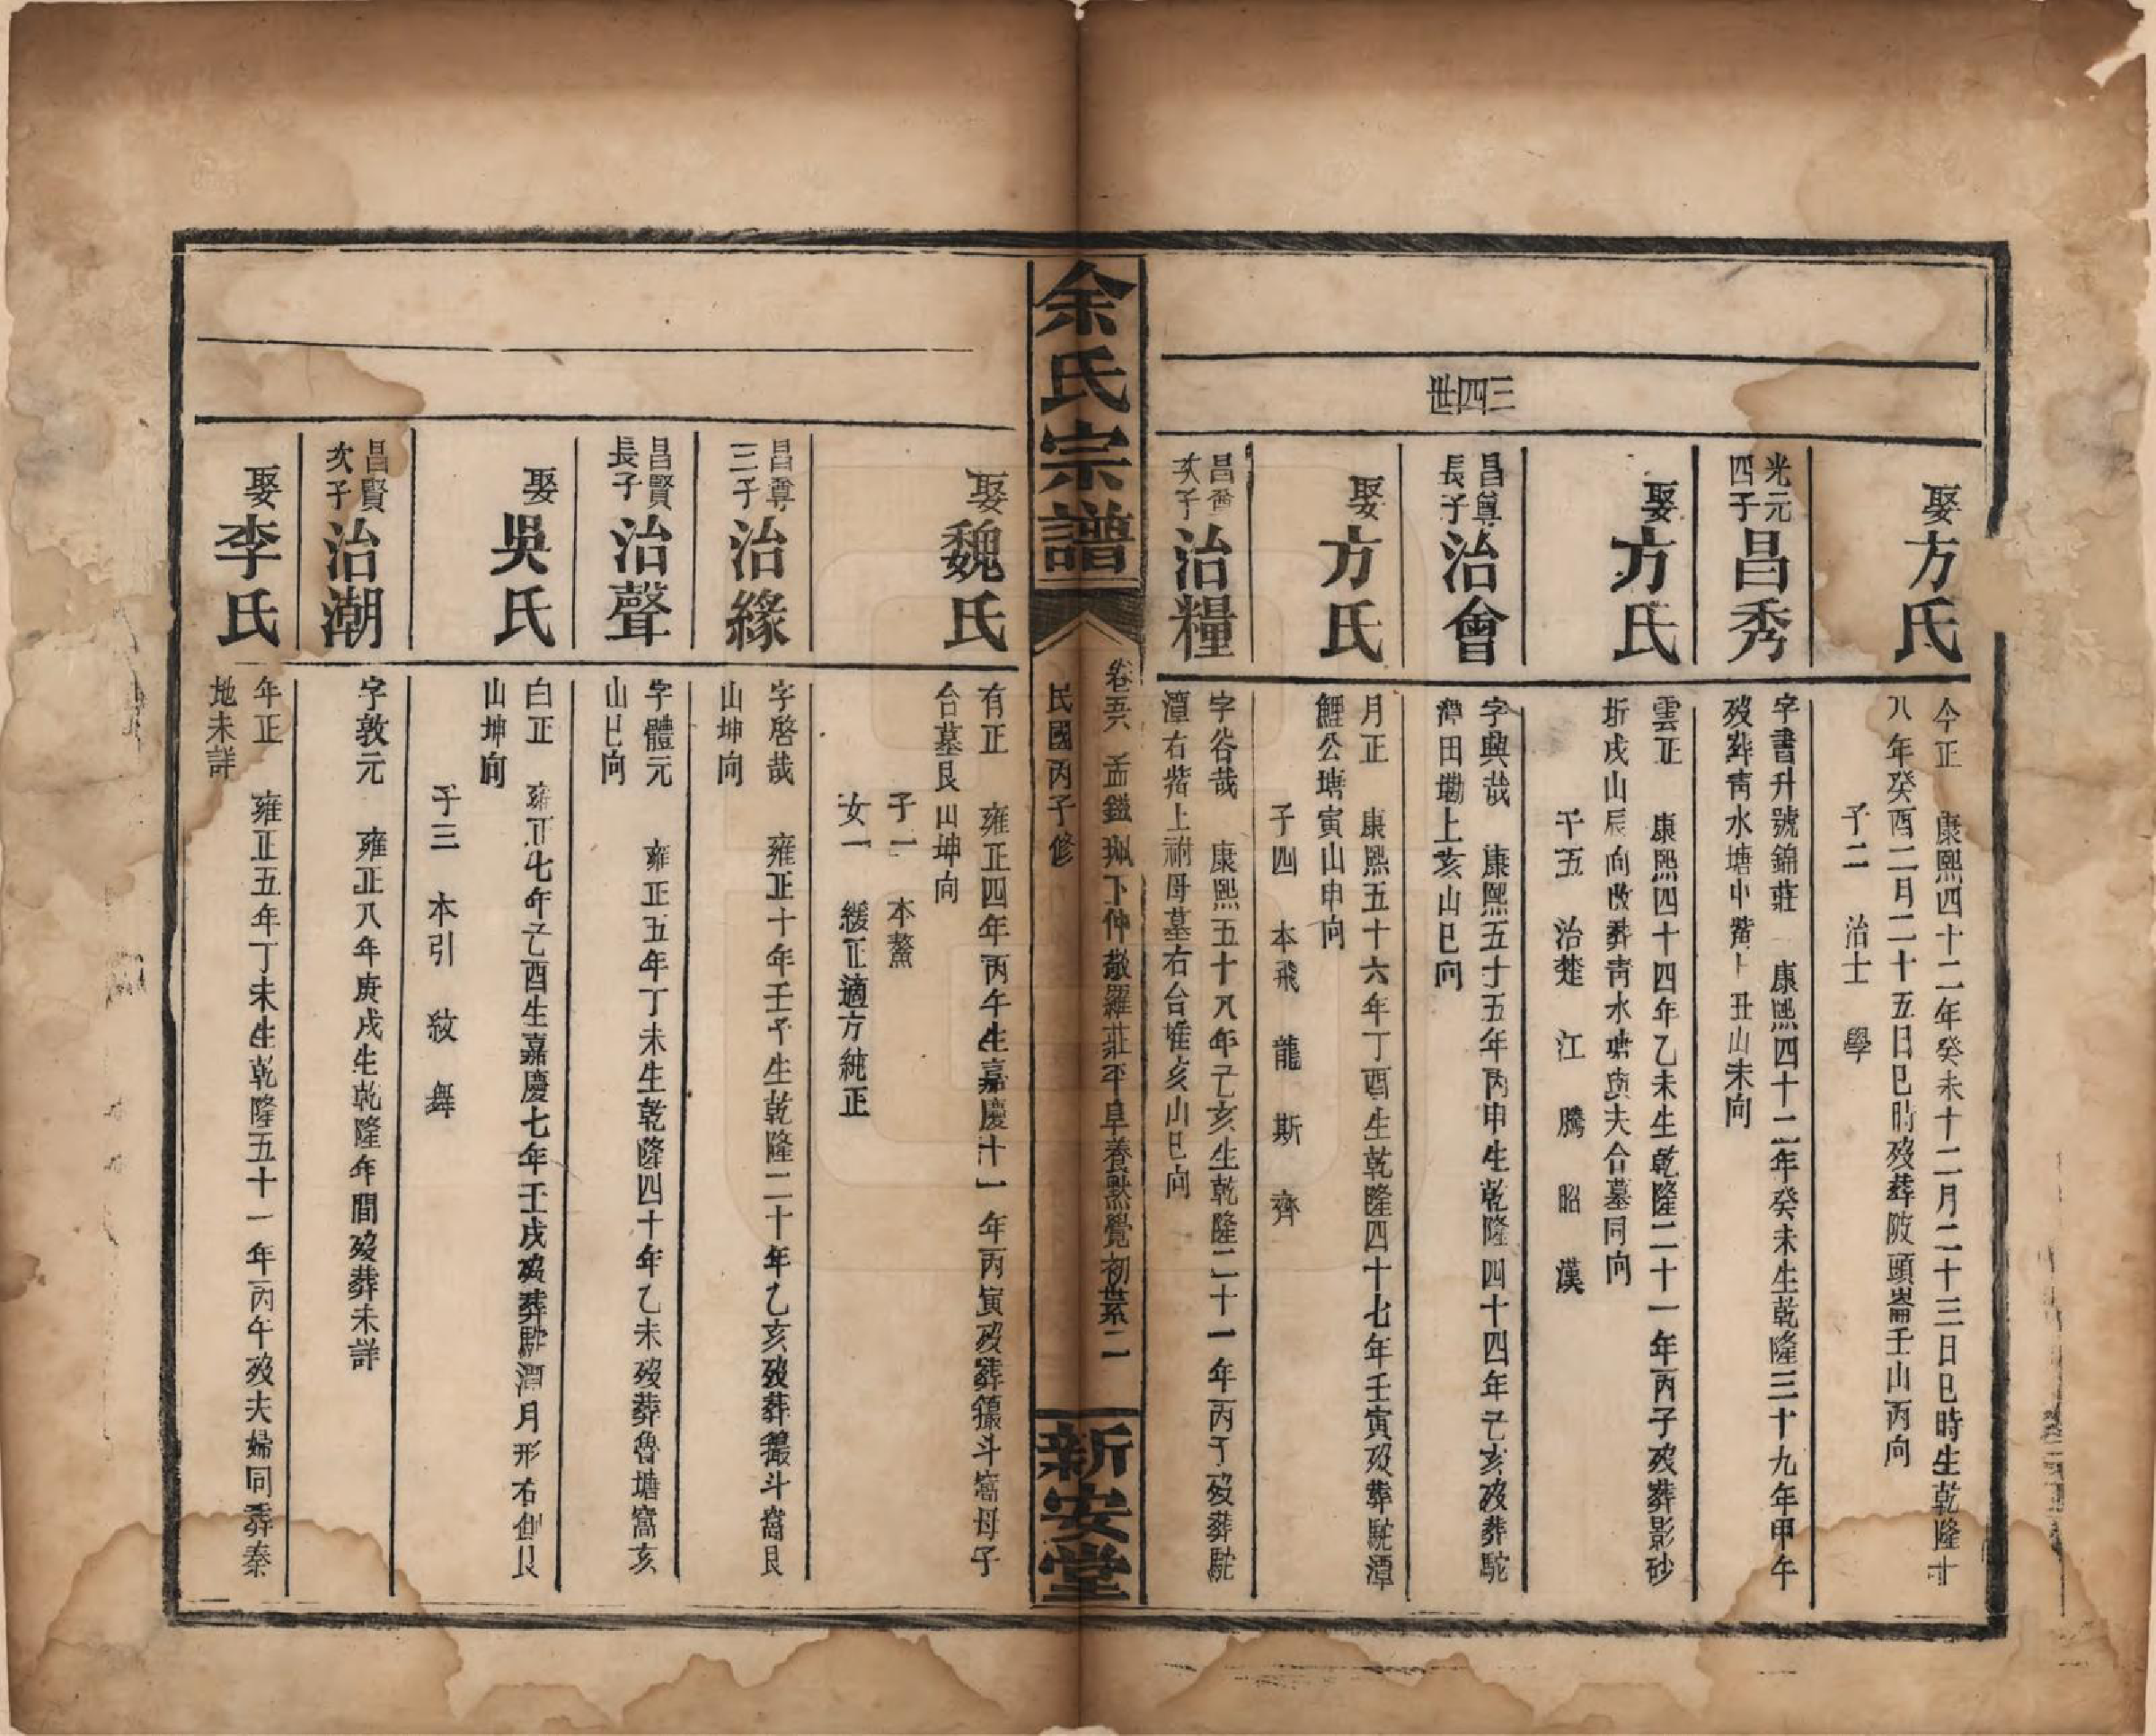 三四世
娶方氏
今正 康熙四十二年癸未十二月二十三日巳時生乾隆十
八年癸酉二月二十五日巳時歿葬陂頭崙壬山丙向
子二 治士 學
光元四子昌秀
字書升號錦莊 康熙四十二年癸未生乾隆三十九年甲午
歿葬靑水塘中嘴 丑山未向
娶方氏
雲正 康熙四十四年乙未生乾隆二十一年丙子歿葬影砂
圻戌山辰向改葬靑水塘與夫合墓同向
子五 治楚 江 騰 昭 漢
昌尊長子治會
字興哉 康熙五十五年丙申生乾隆四十四年己亥歿葬駝
潭田墈上亥山巳向
娶方氏
月正 康熙五十六年丁酉生乾隆四十七年壬寅歿葬駝潭
鯉公塘寅山申向
子四 本飛 龍 斯 齊
昌尊次子治糧
字谷哉 康熙五十八年己亥生乾隆二十一年丙子歿葬駝
潭右嘴上祔母墓右台堆亥山巳向
余氏宗譜
卷五六 孟鎰珮下仲敬羅莊平阜養默覺初世系二
民國丙子修
新安堂
娶魏氏
有正 雍正四年丙午生嘉慶十一年丙寅歿葬斗窩母子
台墓艮山坤向
子一 本鰲
女一 緩正適方純正
昌尊三子治緣
字啓哉 雍正十年壬子生乾隆二十年乙亥歿葬斗窩艮
山坤向
昌賢長子治聲
字體元 雍正五年丁未生乾隆四十年乙未歿葬魯塘窩亥
山巳向
娶吳氏
白正 雍正七年己酉生嘉慶七年壬戌歿葬駝潭月形右艮
山坤向
子三 本引 紋 舞
昌賢次子治潮
字敦元 雍正八年庚戌生乾隆年間歿葬未詳
娶李氏
年正 雍正五年丁未生乾隆五十一年丙午歿夫婦同葬秦
地未詳